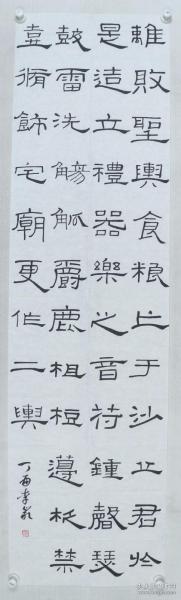 離敗聖輿食粮亡于沙丘君於
是造立禮器樂之音符鍾磬瑟
鼓雷洗觴觚爵鹿柤梪籩柉禁
壺脩飾宅廟更作二輿
丁酉李